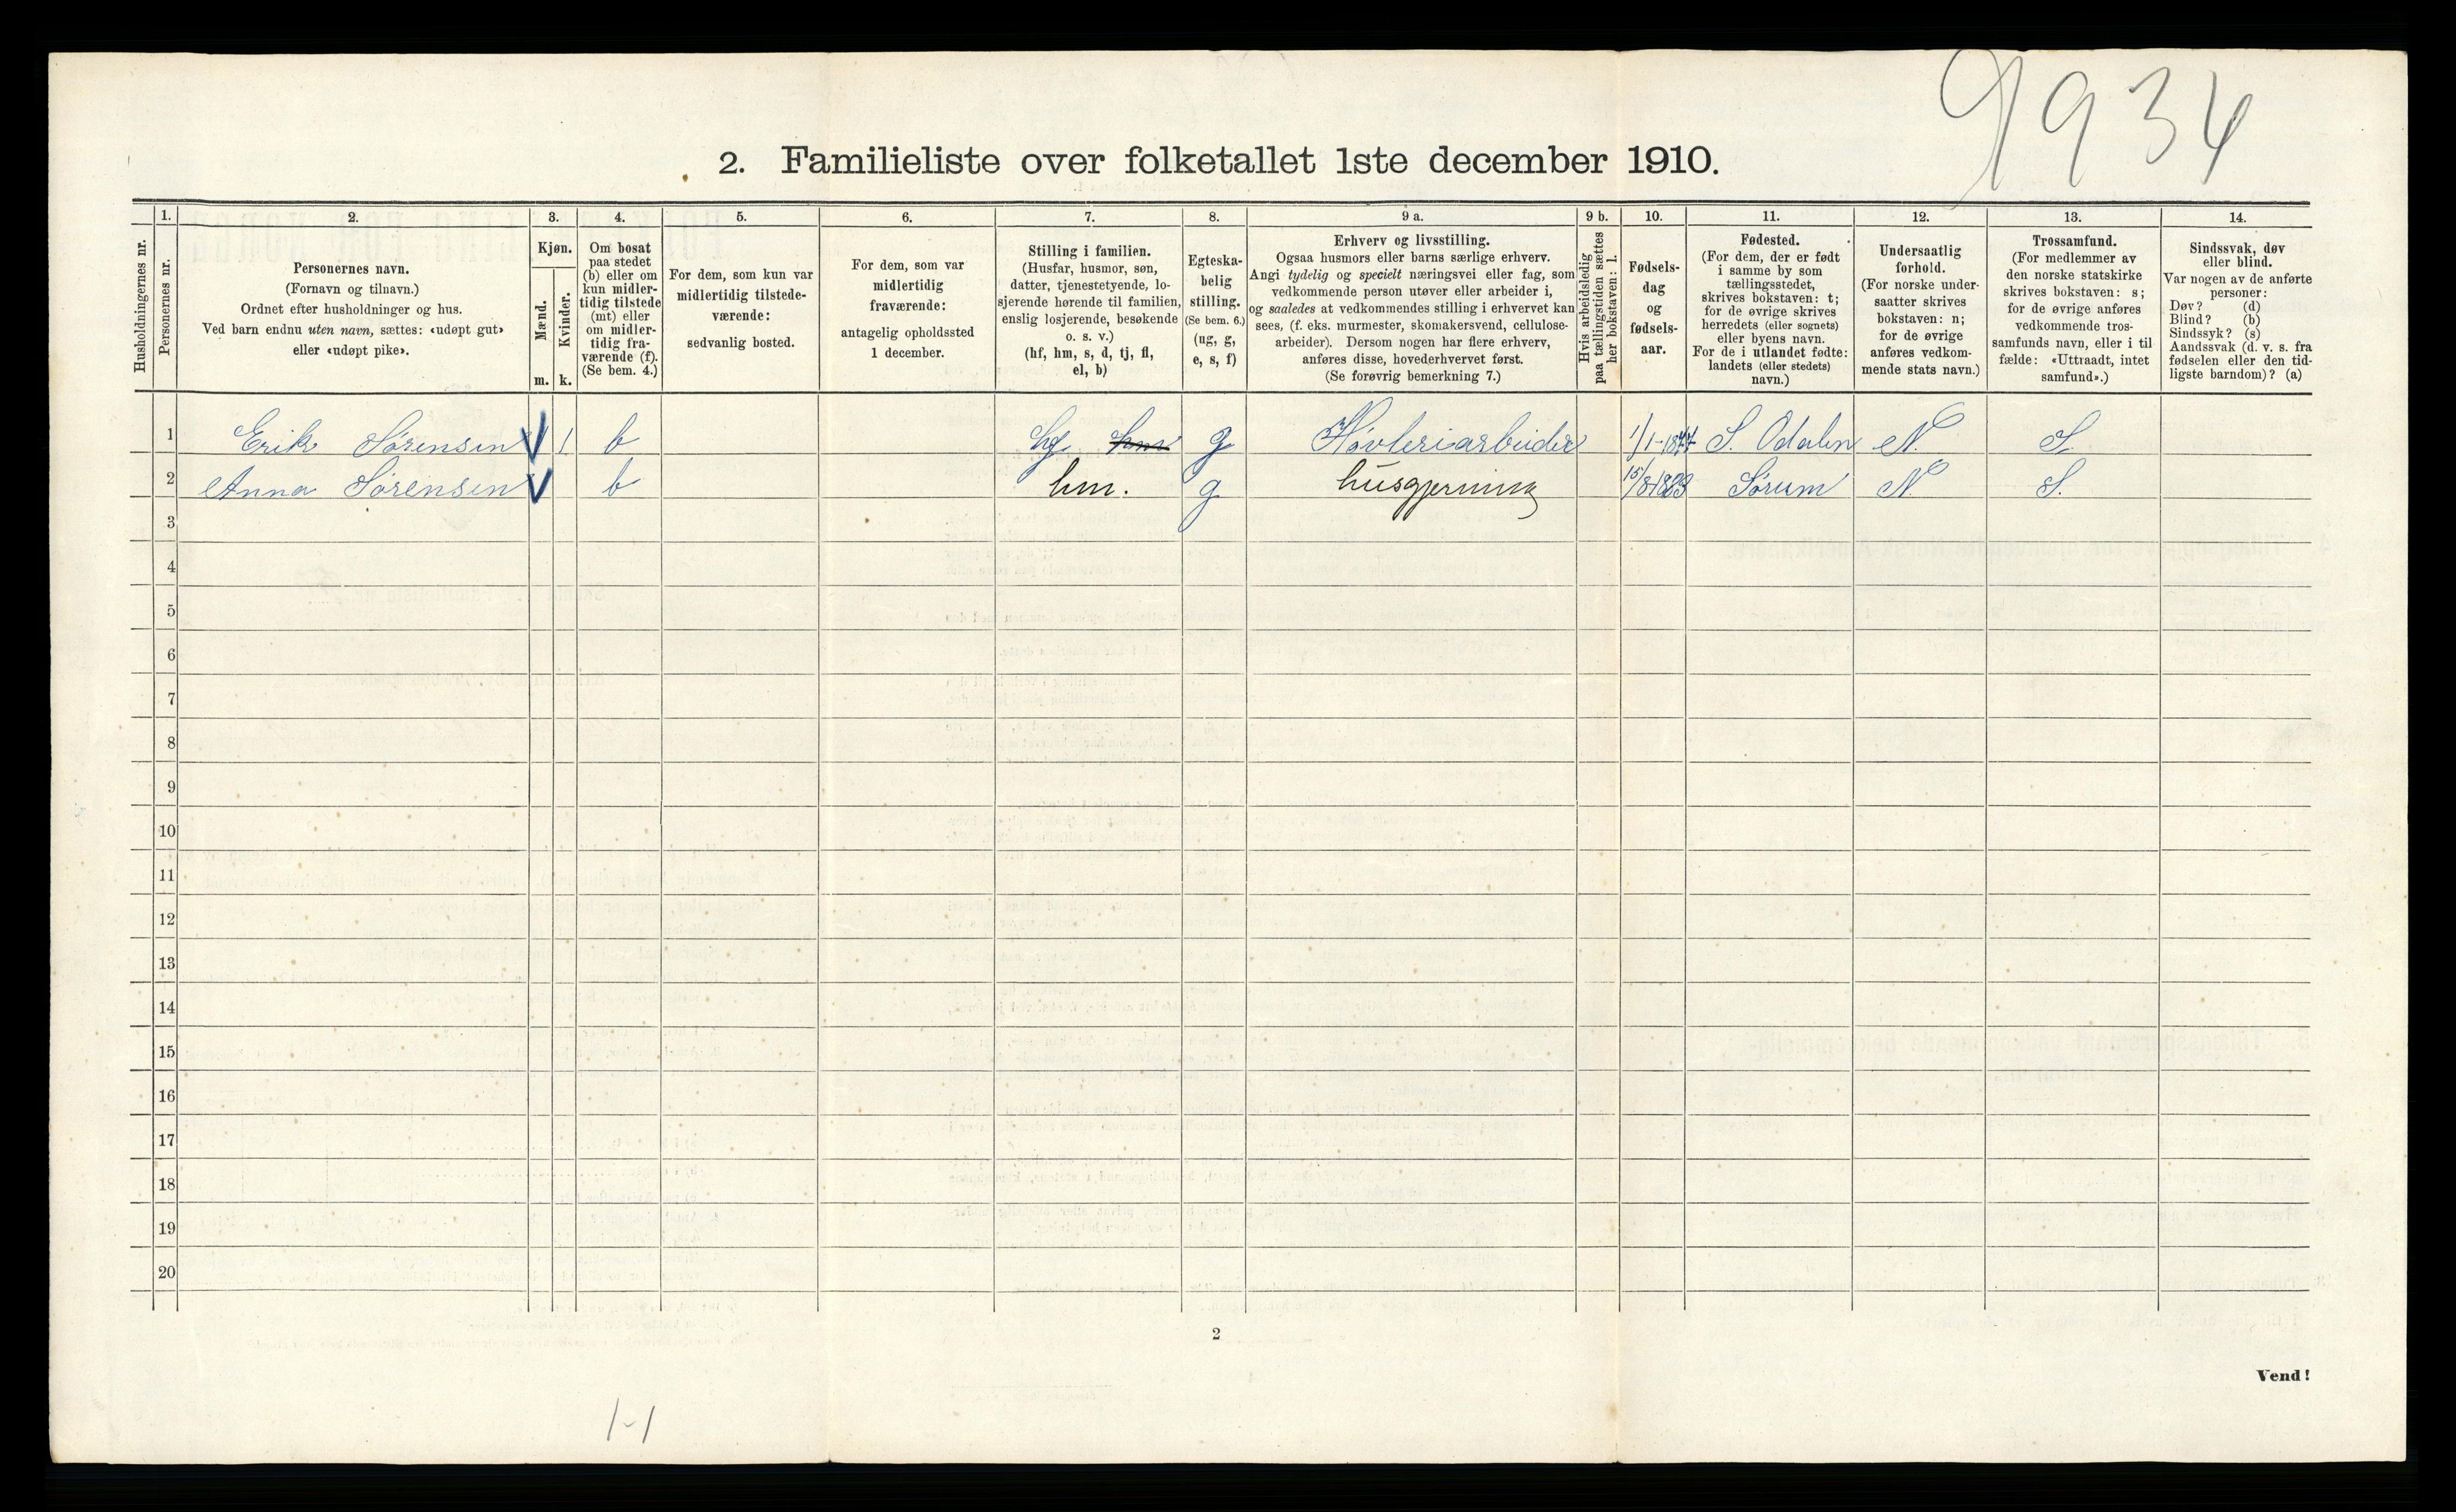 9934
2. Familieliste over folketallet 1ste december 1910.
1. 2. 3. 4. 5. 6. 7. 8. 9 a. 9 b. 10. 11. 12. 13. 14.
Husholdningernes nr.
Personernes nr.
Personernes navn.
(Fornavn og tilnavn.)
Ordnet efter husholdninger og hus.
Ved barn endnu uten navn, sættes: «udøpt gut»
eller «udøpt pike».
Kjøn.
Mænd.
Kvinder.
m. k.
Om bosat
paa stedet
(b) eller om
kun midler-
tidig tilstede
(mt) eller
om midler-
tidig fra-
værende (f).
(Se bem. 4.)
For dem, som kun var
midlertidig tilstede-
værende:
sedvanlig bosted.
For dem, som var
midlertidig
fraværende:
antagelig opholdssted
1 december.
Stilling i familien.
(Husfar, husmor, søn,
datter, tjenestetyende, lo-
sjerende hørende til familien,
enslig losjerende, besøkende
o. s. v.)
(hf, hm, s, d, tj, fl,
el, b)
Egteska-
belig
stilling.
(Se bem. 6.)
(ug, g,
e, s, f)
Erhverv og livsstilling.
Ogsaa husmors eller barns særlige erhverv.
Angi tydelig og specielt næringsvei eller fag, som
vedkommende person utøver eller arbeider i,
og saaledes at vedkommendes stilling i erhvervet kan
sees, (f. eks. murmester, skomakersvend, cellulose-
arbeider). Dersom nogen har flere erhverv,
anføres disse, hovederhvervet først.
(Se forøvrig bemerkning 7.)
Hvis arbeidsledig
paa tællingstiden sættes
her bokstaven: l.
Fødsels-
dag
og
fødsels-
aar.
Fødested.
(For dem, der er født
i samme by som
tællingsstedet,
skrives bokstaven: t;
for de øvrige skrives
herredets (eller sognets)
eller byens navn.
For de i utlandet fødte:
landets (eller stedets)
navn.)
Undersaatlig
forhold.
(For norske under-
saatter skrives
bokstaven: n;
for de øvrige
anføres vedkom-
mende stats navn.)
Trossamfund.
(For medlemmer av
den norske statskirke
skrives bokstaven: s;
for de øvrige anføres
vedkommende tros-
samfunds navn, eller i til
fælde: «Uttraadt, intet
samfund».)
Sindssvak, døv
eller blind.
Var nogen av de anførte
personer:
Døv? (d)
Blind? (b)
Sindssyk? (s)
Aandssvak (d. v. s. fra
fødselen eller den tid-
ligste barndom)? (a)
1 Erik Sørensen 1 b hf hm g Høvleriarbeider S. Odalen N. S.
2 Anna Sørensen b hm. g husgjerning 15/8 Sørum N. S.
3
4
5
6
7
8
9
10
11
12
13
14
15
16
17
18
19
20
2
Vend!
1-1